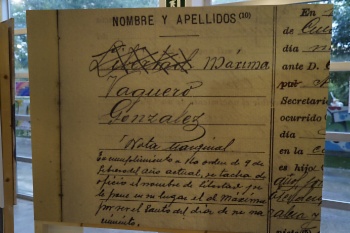 NOMBRE Y APELLIDOS (10)
Libertad Máxima
Vaquero
González
Nota marginal
En cumplimiento a la orden de 9 de
Febrero del año actual, se tacha de
oficio el nombre de Libertad que
le pone en su lugar el de Máxima
por ser el Santo del día de su na-
cimiento.
En
de Cu
día
ante D.
por
Secretario
ocurrido
día
en la
es hijo